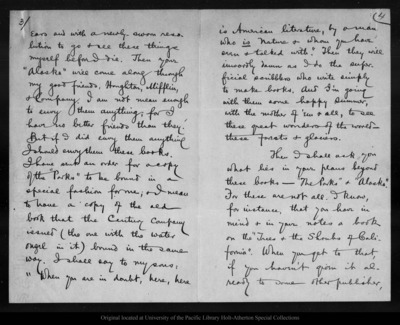 3/
ears and with a newly sworn reso-
lution to go & see these things
myself before I die. Then your
"Alaska" will come along through
my good friends, Houghton, Mifflin,
& Company. I am not mean enough
to envy them anything; for I
have no better friends than they.
But if I did envy them anything
I should envy them these books.
I have sent an order for a copy
of the "Parks" to be bound in
special fashion for me, & I mean
to have a copy of the old
book that the Century Company
issued (the one with the water
ouzel in it) bound in the same
way. I shall say to my sons:
"When you are in doubt, here, here
(4
is American literature, by a man
who is Nature & whom you have
seen & talked with." Then they will
inwardly damn as I do the super-
ficial scribblers who write simply
to make books. And I'm going
with them some happy summer,
with the mother of 'em & all, to see
these great wonders of the world—
these forests & glaciers.
Then I shall ask you
what lies in your plans beyond
these books — The "Parks" & "Alaska".
For these are not all, I know;
for instance, that you have in
mind & in your notes a book
on the "Trees & the Shrubs of Cali-
fornia". When you get to that
if you haven't given it al-
ready to some other publisher,
Original located at University of the Pacific Library Holt-Atherton Special Collections